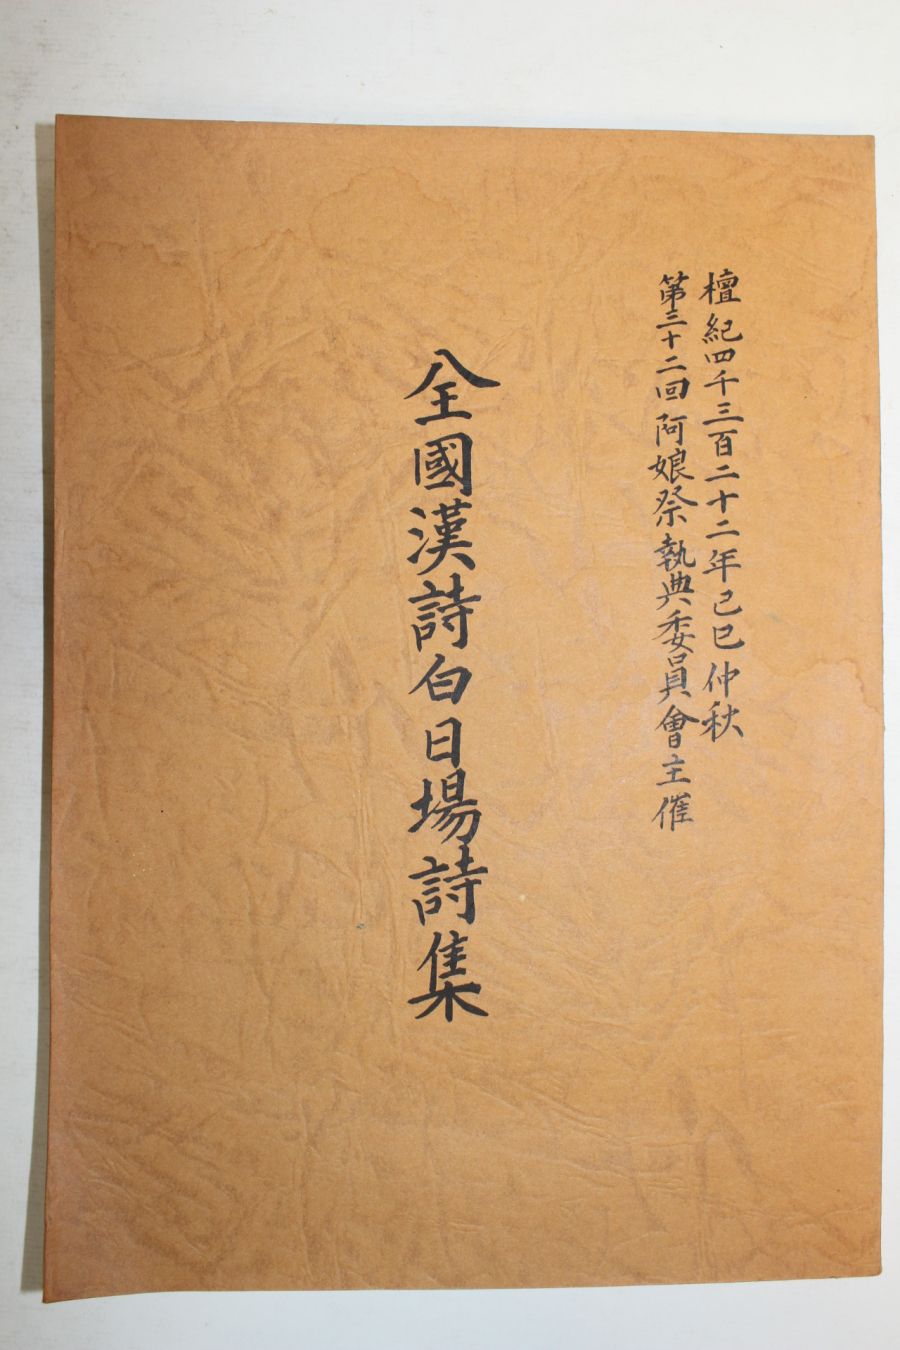 檀紀四千三百二十二年己巳仲秋
第三十二回阿娘祭執典委員會主催
全國漢詩白日場詩集